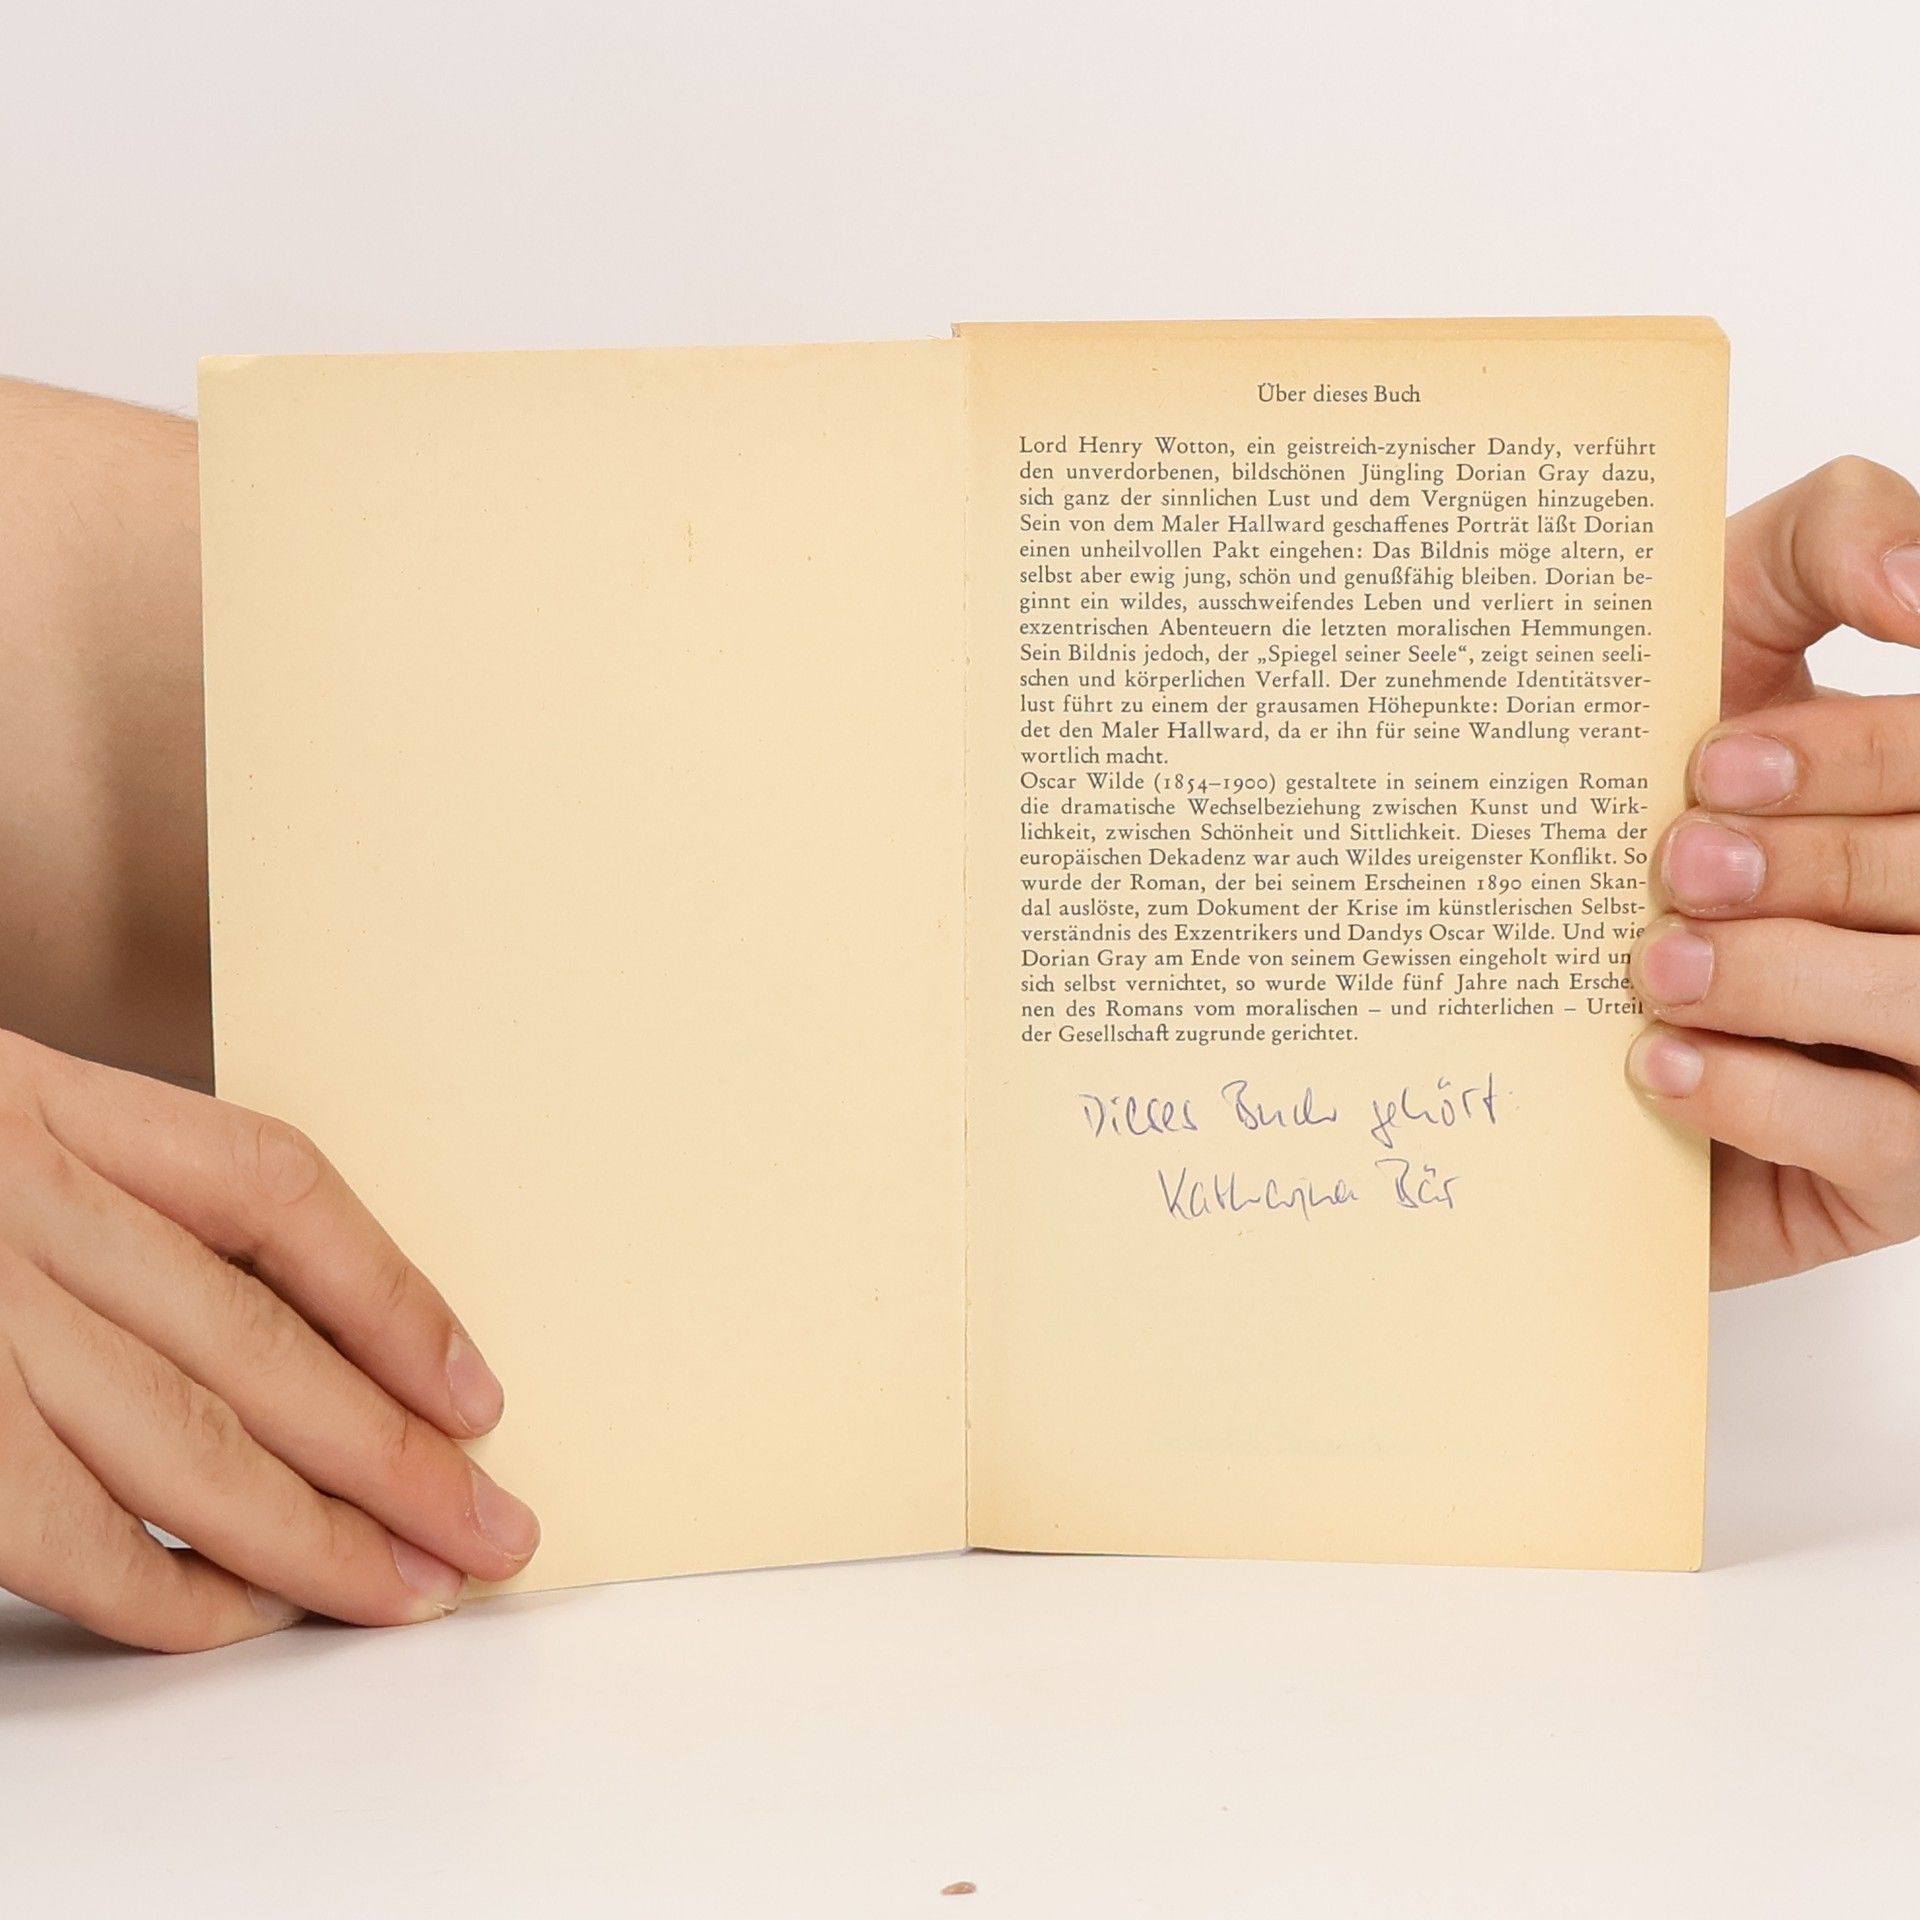 Über dieses Buch
Lord Henry Wotton, ein geistreich-zynischer Dandy, verführt
den unverdorbenen, bildschönen Jüngling Dorian Gray dazu,
sich ganz der sinnlichen Lust und dem Vergnügen hinzugeben.
Sein von dem Maler Hallward geschaffenes Porträt läßt Dorian
einen unheilvollen Pakt eingehen: Das Bildnis möge altern, er
selbst aber ewig jung, schön und genußfähig bleiben. Dorian be-
ginnt ein wildes, ausschweifendes Leben und verliert in seinen
exzentrischen Abenteuern die letzten moralischen Hemmungen.
Sein Bildnis jedoch, der „Spiegel seiner Seele“, zeigt seinen seeli-
schen und körperlichen Verfall. Der zunehmende Identitätsver-
lust führt zu einem der grausamen Höhepunkte: Dorian ermor-
det den Maler Hallward, da er ihn für seine Wandlung verant-
wortlich macht.
Oscar Wilde (1854–1900) gestaltete in seinem einzigen Roman
die dramatische Wechselbeziehung zwischen Kunst und Wirk-
lichkeit, zwischen Schönheit und Sittlichkeit. Dieses Thema der
europäischen Dekadenz war auch Wildes ureigenster Konflikt. So
wurde der Roman, der bei seinem Erscheinen 1890 einen Skan-
dal auslöste, zum Dokument der Krise im künstlerischen Selbst-
verständnis des Exzentrikers und Dandys Oscar Wilde. Und wie
Dorian Gray am Ende von seinem Gewissen eingeholt wird un
sich selbst vernichtet, so wurde Wilde fünf Jahre nach Ersche
nen des Romans vom moralischen – und richterlichen – Urteil
der Gesellschaft zugrunde gerichtet.
Dieses Buch gehört:
Katharina Bär